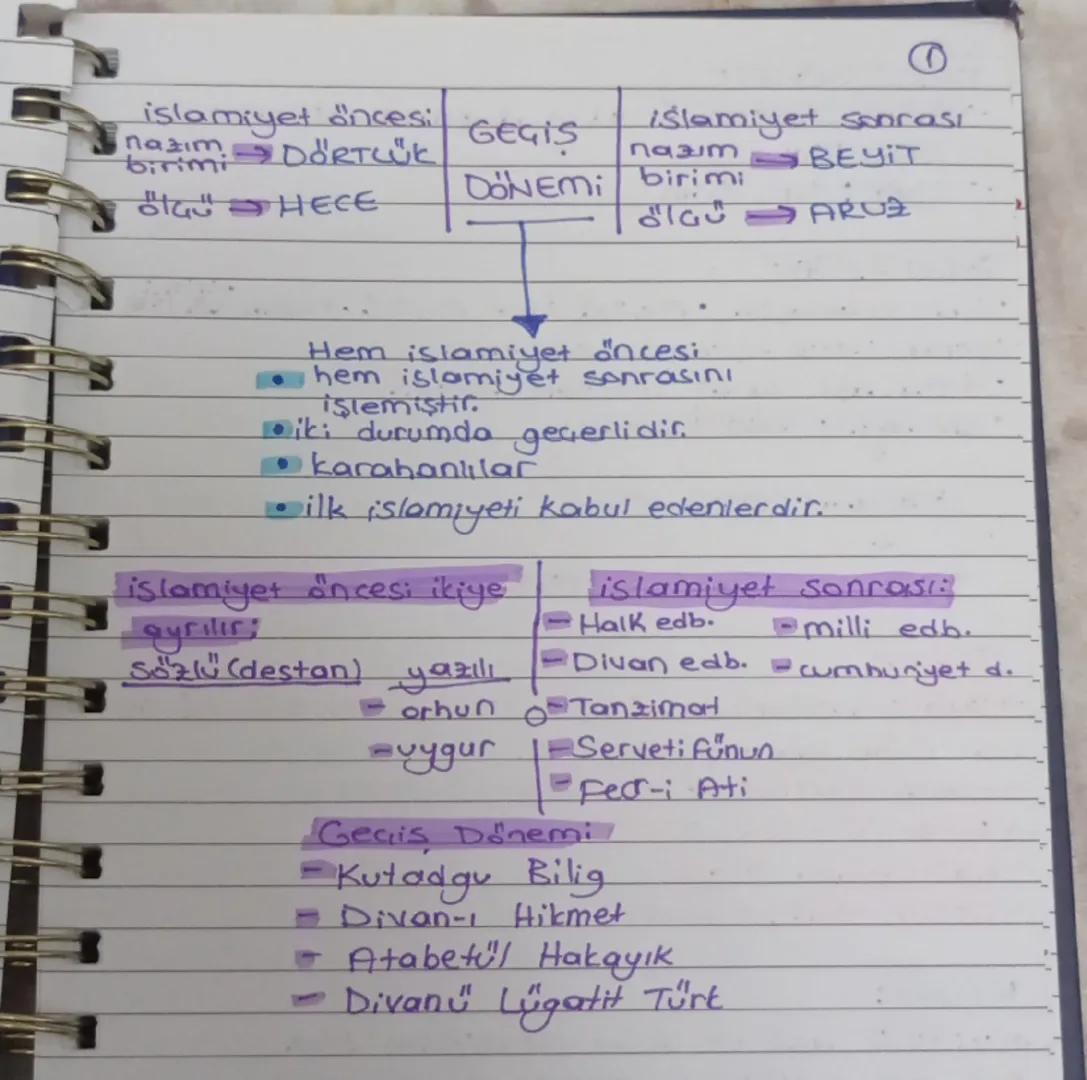 1
islamiyet öncesi
nazım birimi → DÖRTLÜK
ölçü → HECE
GEÇİŞ
DÖNEMİ
islamiyet sonrası
nazım birimi → BEYİT
ölçü → ARUZ
Hem islamiyet öncesi
• hem islamiyet sonrasını
işlemiştir.
• iki durumda geçerlidir.
• karahanlılar
• ilk islamiyeti kabul edenlerdir.
islamiyet öncesi ikiye
ayrılır;
sözlü (destan) yazılı
- orhun
- uygur
islamiyet sonrası:
- Halk edb.
- Divan edb.
- Tanzimat
- Serveti fünun
- Fecr-i Ati
- milli edb.
- cumhuriyet d.
Geçiş Dönemi
- Kutadgu Bilig
- Divan-ı Hikmet
- Atabetü'l Hakayık
- Divanü Lügatit Türk